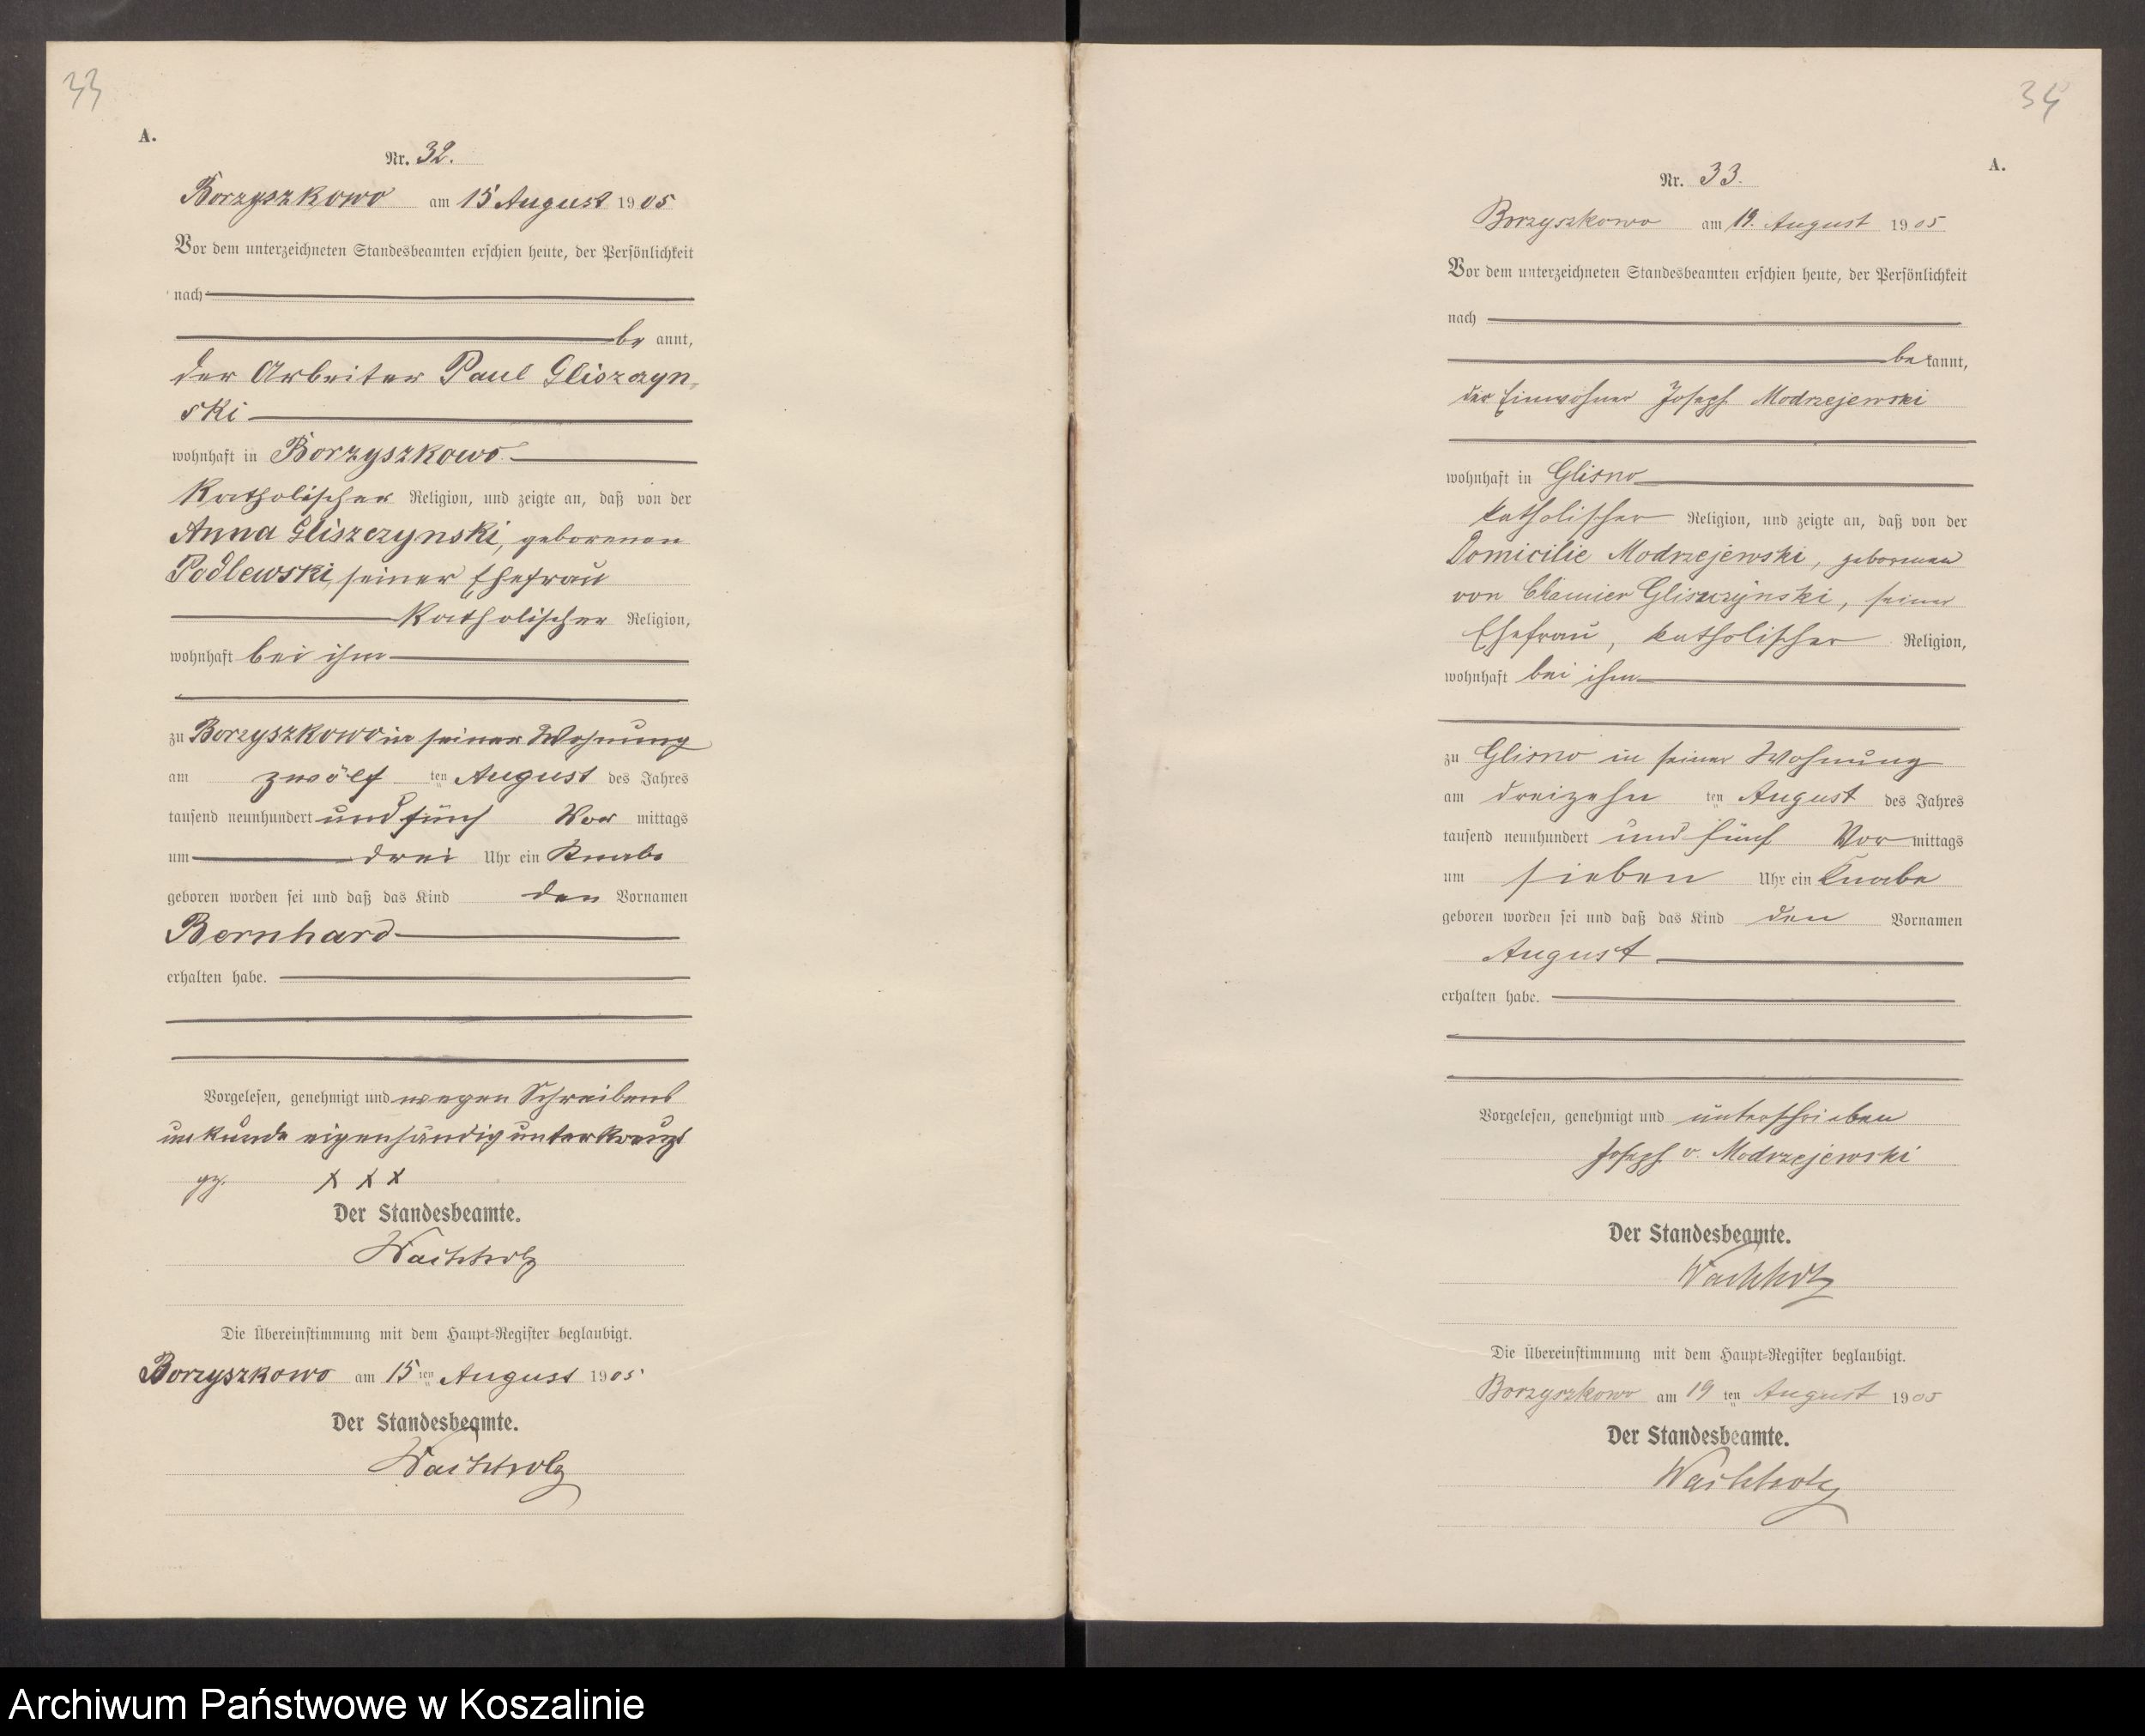 33
A.
Nr. 32.
Borzyszkowo am 15 August 1905
Vor dem unterzeichneten Standesbeamten erschien heute, der Persönlichkeit
nach
be annt,
der Arbeiter Paul Gliszczyn-
ski
wohnhaft in Borzyszkowo
Katholischer Religion, und zeigte an, daß von der
Anna Gliszczynski, geborenen
Podlewski, seiner Ehefrau
Katholischer Religion,
wohnhaft bei ihm
zu Borzyszkowo in seiner Wohnung
am zwölf ten August des Jahres
tausend neunhundert und fünf Vor mittags
um drei Uhr ein Knabe
geboren worden sei und daß das Kind den Vornamen
Bernhard
erhalten habe.
Vorgelesen, genehmigt und wegen Schreibens
unkunde eigenhändig unterkreuzt
gz. X X X
Der Standesbeamte.
Wachholz
Die Übereinstimmung mit dem Haupt-Register beglaubigt.
Borzyszkowo am 15 ten August 1905
Der Standesbeamte.
Wachholz
34
A.
Nr. 33.
Borzyszkowo am 19. August 1905
Vor dem unterzeichneten Standesbeamten erschien heute, der Persönlichkeit
nach
be kannt,
der Einwohner Joseph Modrzejewski
wohnhaft in Glisno
katholischer Religion, und zeigte an, daß von der
Domicilie Modrzejewski, geborenen
von Chamier Gliszczynski, seiner
Ehefrau, katholischer Religion,
wohnhaft bei ihm
zu Glisno in seiner Wohnung
am dreizehn ten August des Jahres
tausend neunhundert und fünf Vor mittags
um sieben Uhr ein Knabe
geboren worden sei und daß das Kind den Vornamen
August
erhalten habe.
Vorgelesen, genehmigt und unterschrieben
Joseph v. Modrzejewski
Der Standesbeamte.
Wachholz
Die Übereinstimmung mit dem Haupt-Register beglaubigt.
Borzyszkowo am 19 ten August 1905
Der Standesbeamte.
Wachholz
Archiwum Państwowe w Koszalinie